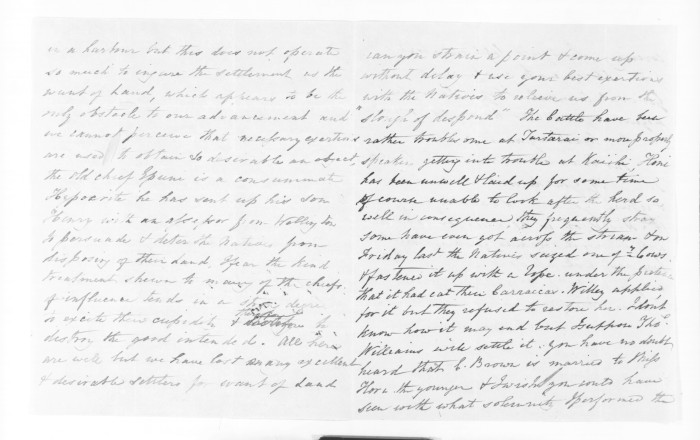 is a harbour but this does not operate
so much to injure the settlement as the
want of Land, which appears to be the
only obstacle to our advancement and
we cannot perceive that necessary exertions
are used to obtain so desirable an object,
the old chief Epuni is a consummate
Hypocrite he has sent up his son
Henry with an from Wellington
to persuade & deter the Natives from
disposing of their Land. I fear the kind
treatment shewn to many of the chiefs
of influence tends in a degree
to excite their cupidity & to
destroy the good intended. All here
are well but we have lost many excellent
& desirable settlers for want of Land
can you strain a point & come up
without delay & use your best exertions
with the Natives to relieve us from the
"slough of despond" The Cattle have been
rather troublesome at or more properly
speaking getting into trouble at
has been unwell & laid up for some time
of course unable to look after the herd so
well in consequence they frequently stray
some have even got across the stream & on
Friday last the Natives seized one of Cows
& fastened it up with a rope under the
that it had eat their Willy applied
for it but they refused to restore her. I dont
know how it may end but suppose Thos.
Williams will settle it. you have no doubt
heard that C. Brown is married to Miss
the younger & I wish you could have
seen with what solemnity I performed the